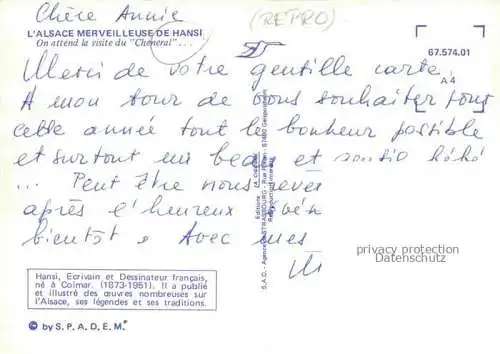 Chère Annie
(RETRO)
L'ALSACE MERVEILLEUSE DE HANSI
On attend la visite du "Cheneral"...
67.574.01
Merci de votre gentille carte
A 4
A mon tour de vous souhaiter pour
cette année tout le bonheur possible
et surtout un beau et
... Peut être nous
après l'heureux
bientôt. Avec mes
privacy protection
Datenschutz
Hansi, Ecrivain et Dessinateur français,
né à Colmar. (1873-1951). Il a publié
et illustré des œuvres nombreuses sur
l'Alsace, ses légendes et ses traditions.
© by S. P. A. D. E. M.
Editions
S.A.C. - Agence STRASBOURG - Rue
Reproduction interdite